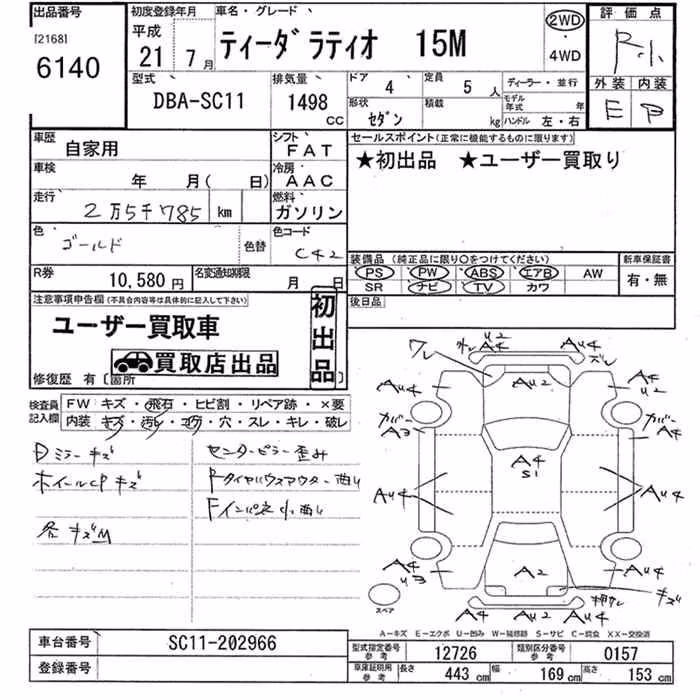 出品番号 初度登録年月 車名・グレード 2WD 評価点
[2168] 平成 ティーダ ラティオ 15M ・ R小
6140 21年 7月 4WD
型式 排気量 ドア 4 定員 5人 ディーラー・並行 外装 内装
DBA-SC11 1498 CC 形状 セダン 積載 kg モデル年式 年 E
ハンドル 左・右
車歴 自家用 シフト FAT セールスポイント(正常に機能するものに限ります)
車検 年 月( 日) 冷房 AAC ★初出品 ★ユーザー買取り
走行 2万5千785 km 燃料 ガソリン
色 ゴールド 色替 色コード C42
装備品(純正品に限り○をつけてください) 新車保証書
PS PW ABS エアB AW 有・無
R券 10,580円 名変通知期限 月 日 SR ナビ TV カワ
注意事項申告欄(不具合内容等は具体的に記入して下さい) 初出品 後日品
ユーザー買取車
買取店出品
修復歴 有[箇所
検査員記入欄 FW キズ・飛石・ヒビ割・リペア跡・×要
内装 キズ・汚レ・コゲ・穴・スレ・キレ・破レ
Dミラーキズ センターピラー歪み
ホイールCPキズ
Fインパネ小曲り
各キズM
ワレ
U2
A4
AU4
ズレ
AU4
AU2
A4
U2
カバー
A3
カバー
A4
A4
S1
AU4
AU4
A4
U3
A2
AU4
キズ
押サレ
A4
AU4
A4
スペア
A-キズ E-エクボ U-凹み W-補修跡 S-サビ C-腐食 XX-交換済
車台番号 SC11-202966 型式指定番号 参考 12726 類別区分番号 参考 0157
登録番号 車庫証明用 参考 長さ 443 cm 幅 169 cm 高さ 153 cm